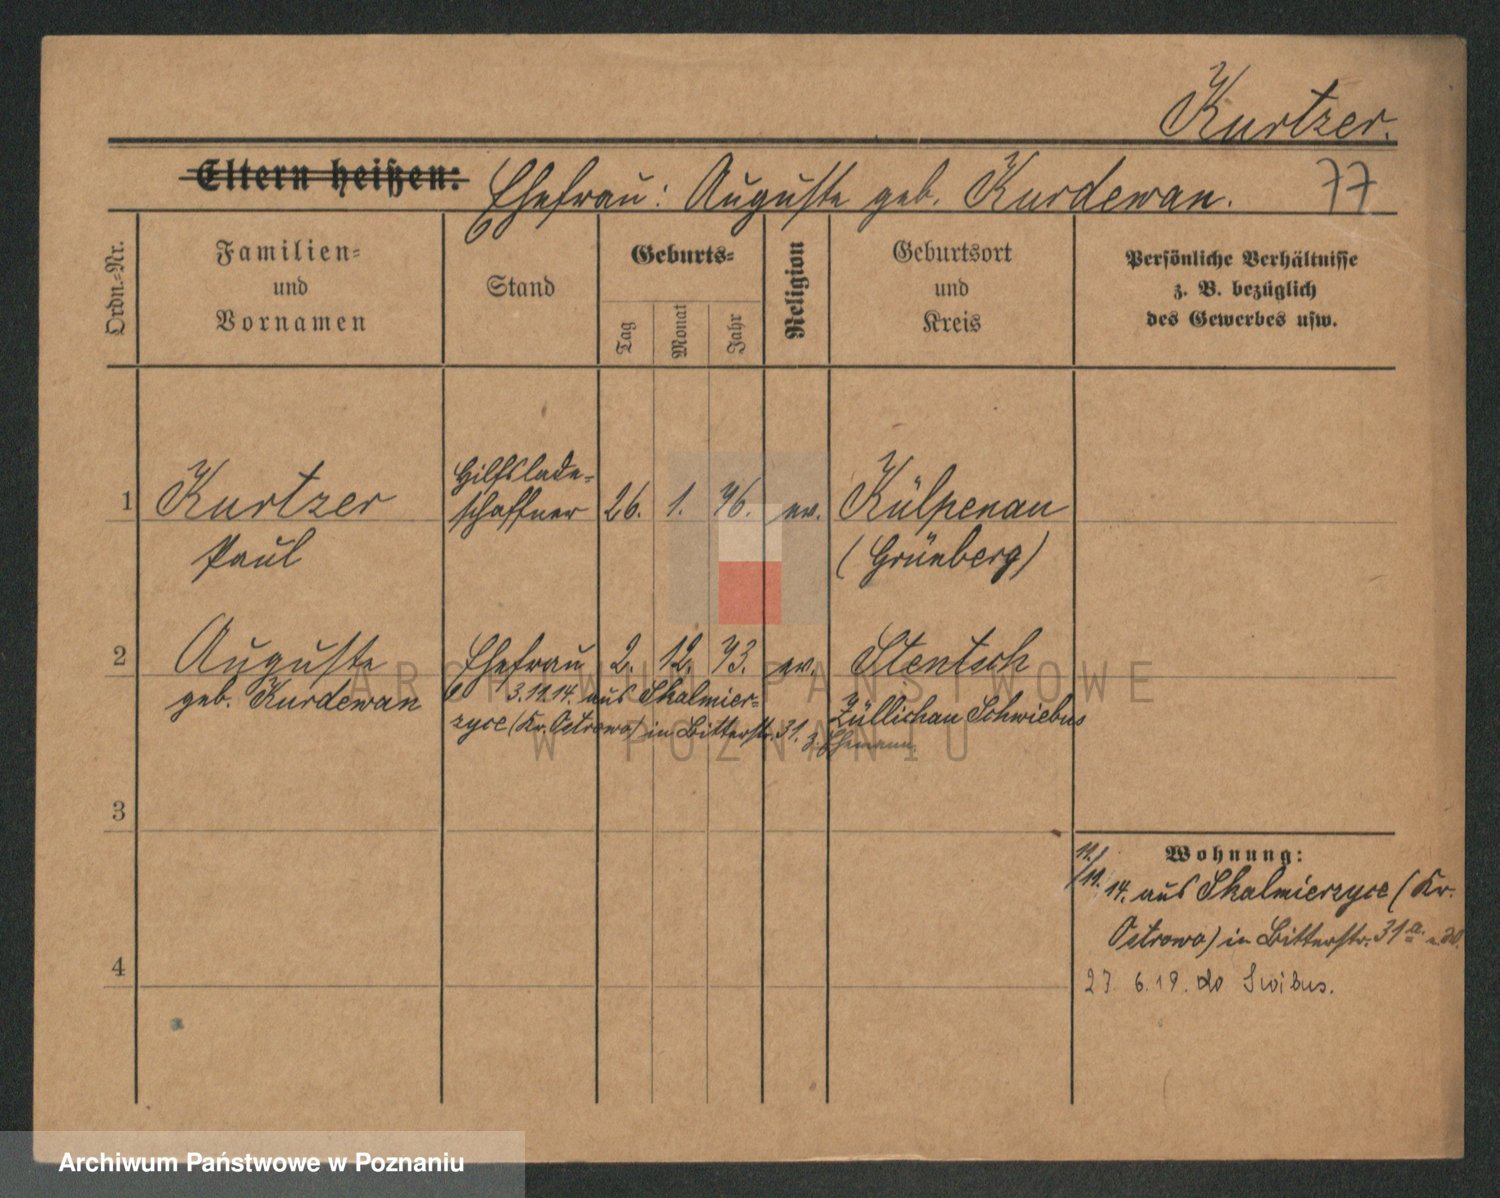 Kurtzer.
Eltern heißen: Ehefrau: Auguste geb. Kurdewan. 77
Ordn.-Nr.
Familien-
und
Vornamen
Stand
Geburts-
Tag
Monat
Jahr
Religion
Geburtsort
und
Kreis
Persönliche Verhältnisse
z. B. bezüglich
des Gewerbes usw.
1 Kurtzer
Paul
Hilfslade-
schaffner
26. 1. 76. ev. Külpenau
(Grünberg)
2 Auguste Ehefrau 2. 12. 73. ev. Stentsch
geb. Kurdewan
3.11.14. aus Skalmier-
zyce (Kr. Ostrowo) in Bitterstr. 31. z. Ehemann.
Züllichau Schwiebus
3
4
Wohnung:
11./11. 14. aus Skalmierzyce (Kr.
Ostrowo) in Bitterstr. 31a
27. 6.19. do Swibus.
ARCHIWUM PAŃSTWOWE
W POZNANIU
Archiwum Państwowe w Poznaniu